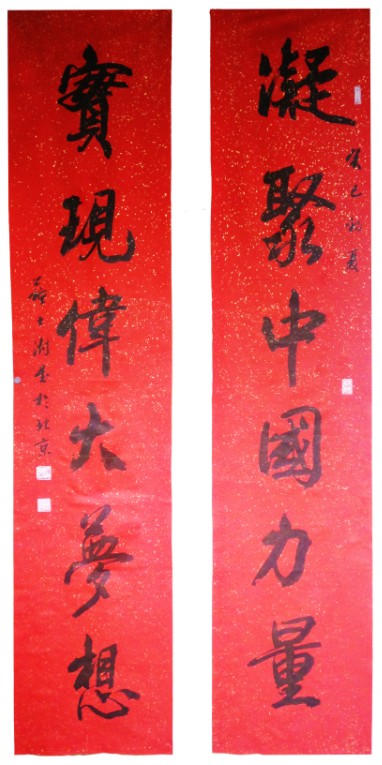 凝聚中國力量
癸巳初夏
實現偉大夢想
於北京